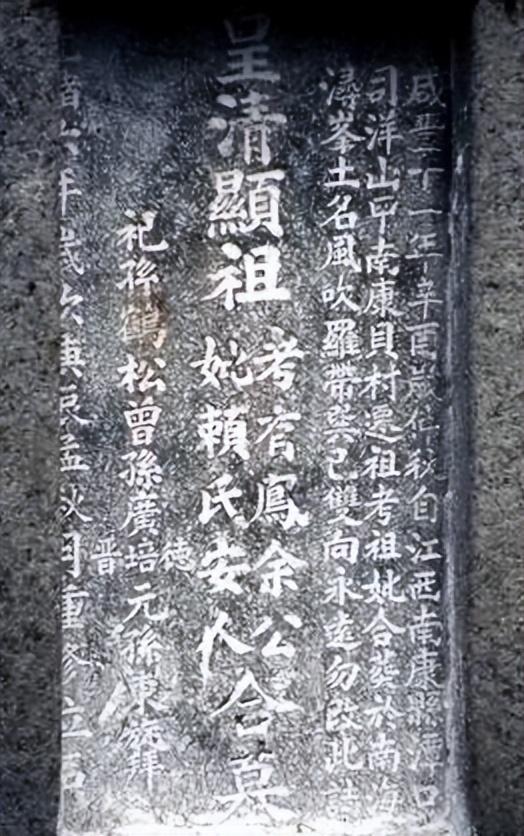 咸豐十一年辛酉歲仲秋自江西南康縣潭口
司洋山甲南康貝村遷祖考祖妣合葬於南海
潯峯土名風吹羅帶巽巳雙向永遠勿改此誌
皇清顯祖
考宥鳳余公
妣賴氏安人
合墓
德
祀孫鶴松曾孫廣培元孫東毓拜
晋
光緒六年歲次庚辰孟秋月重修立石